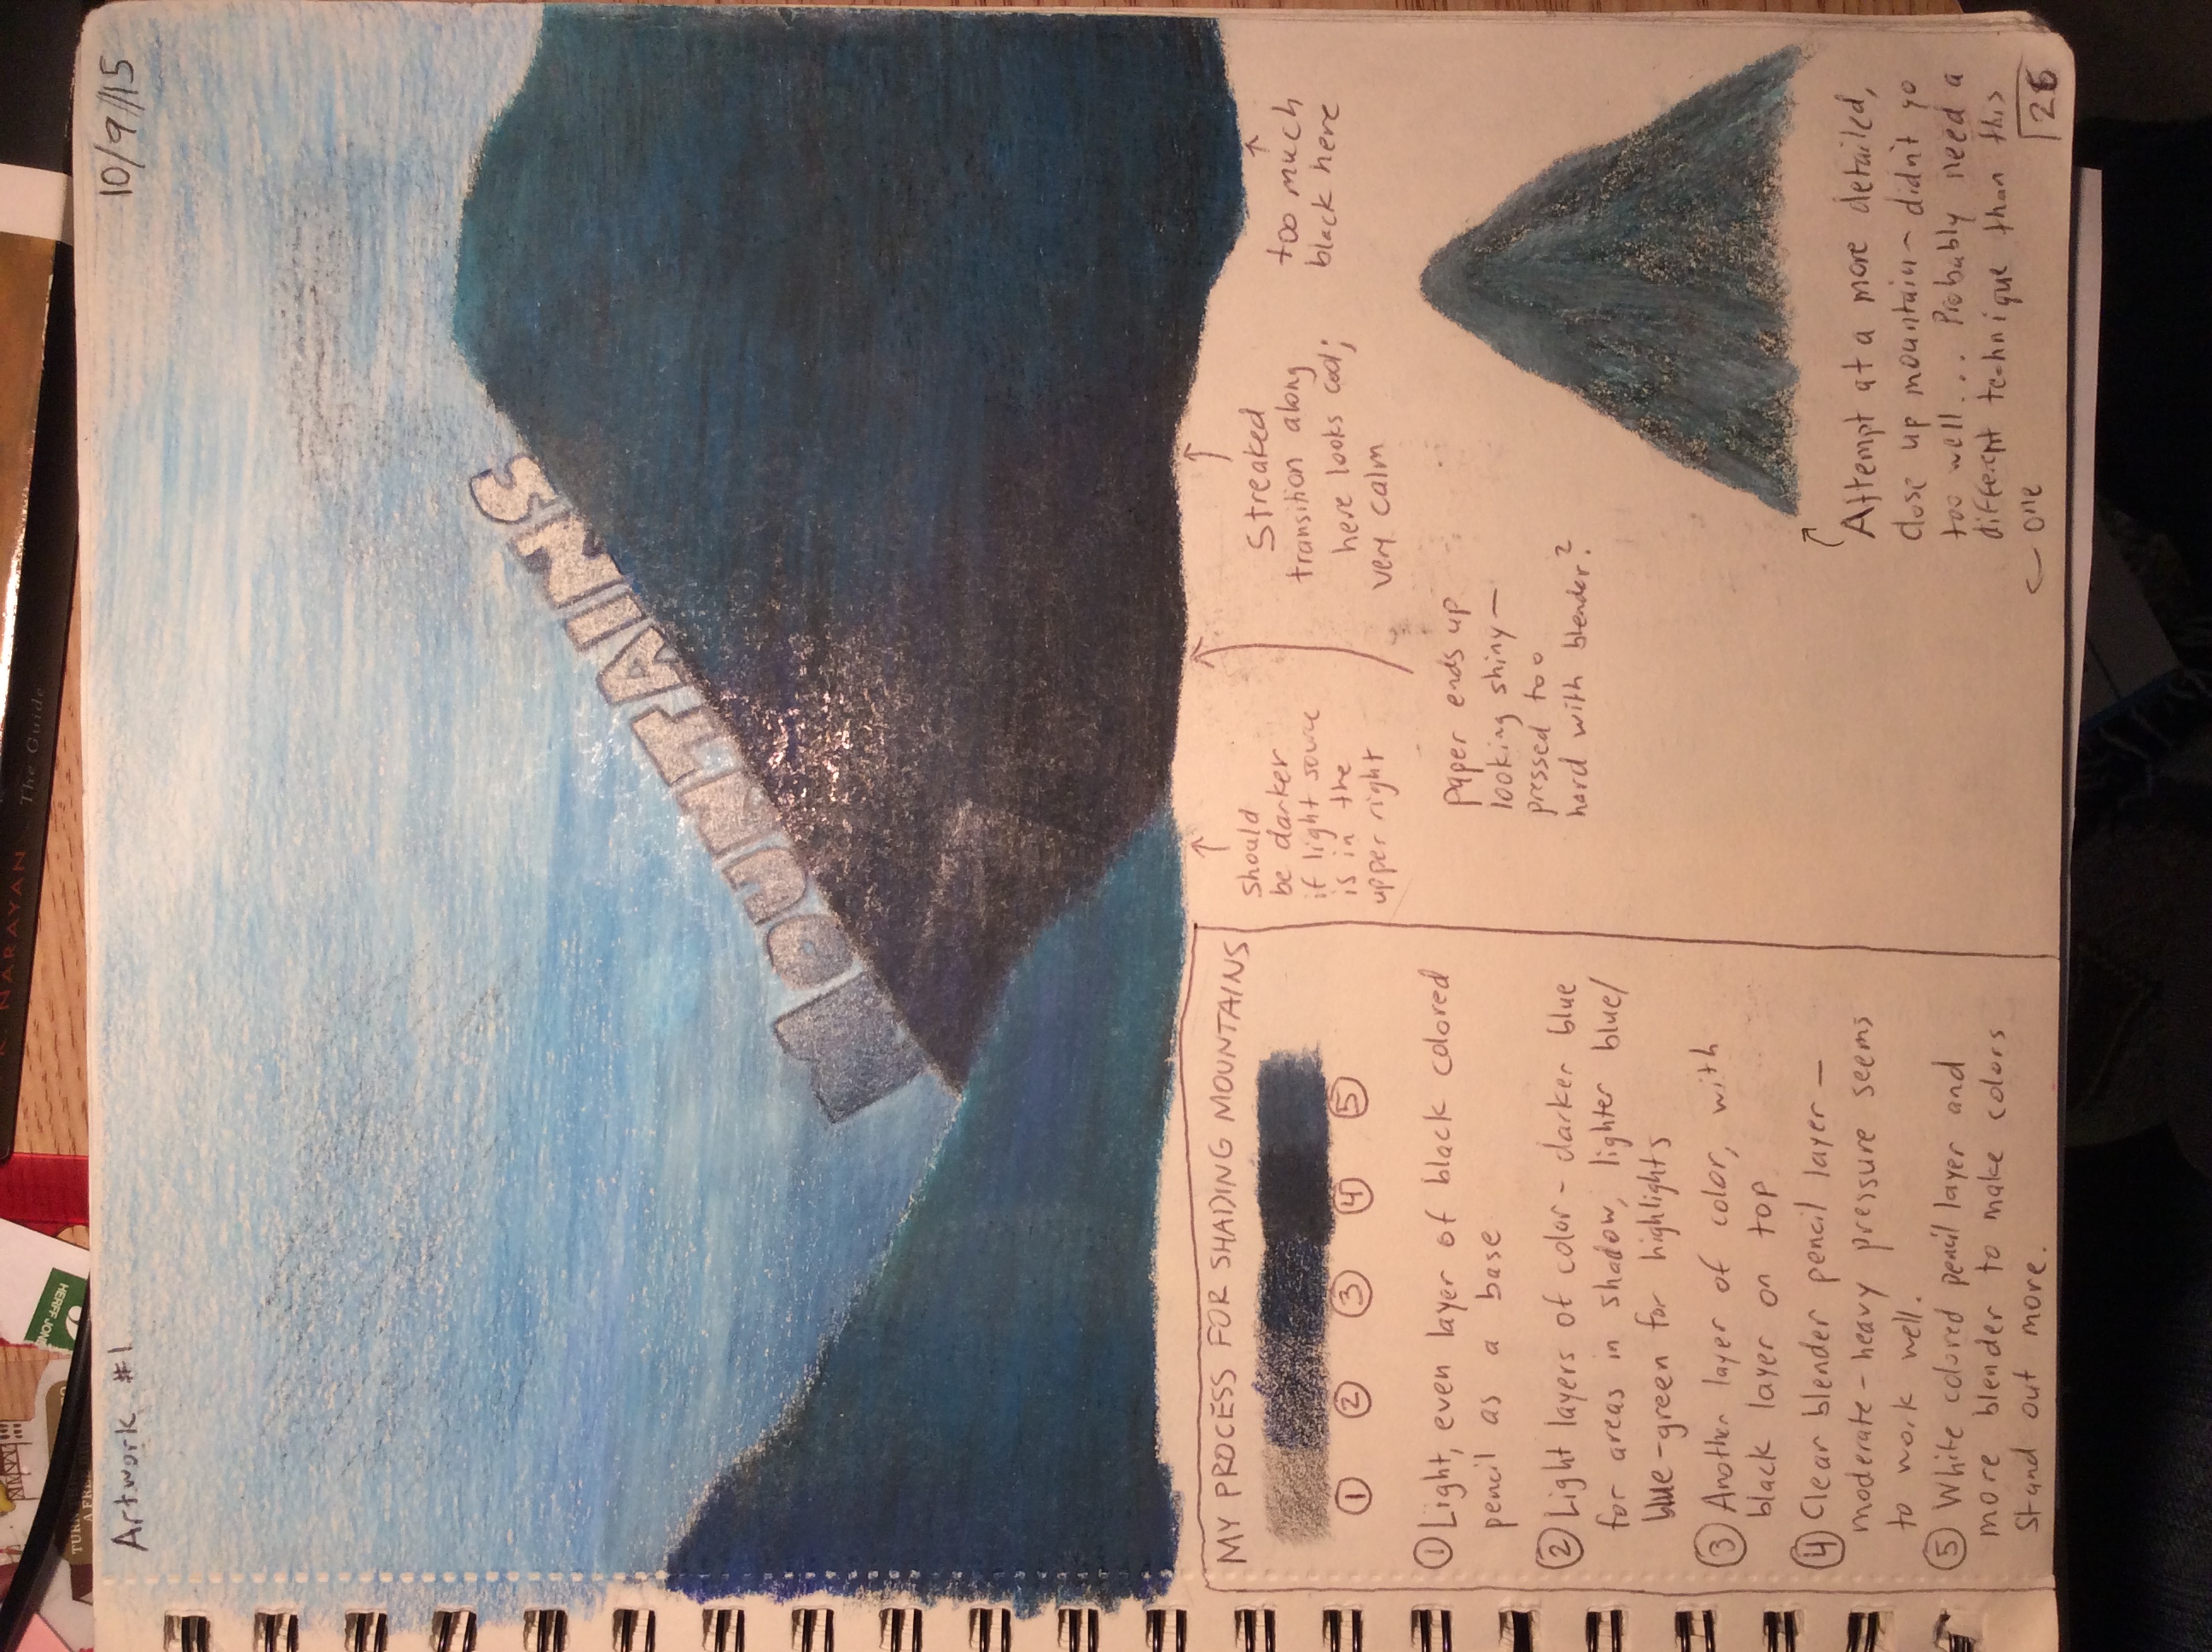 Artwork #1
10/9/15
MOUNTAINS
MY PROCESS FOR SHADING MOUNTAINS
1 2 3 4 5
① Light, even layer of black colored
pencil as a base
② Light layers of color - darker blue
for areas in shadow, lighter blue/
blue-green for highlights
③ Another layer of color, with
black layer on top
④ Clear blender pencil layer -
moderate-heavy pressure seems
to work well.
⑤ White colored pencil layer and
more blender to make colors
stand out more.
should
be darker
if light source
is in the
upper right
Streaked
transition along
here looks cool;
very calm
too much
black here
Paper ends up
looking shiny -
pressed too
hard with blender?
Attempt at a more detailed,
close up mountain - didn't go
too well... Probably need a
different technique than this
one
26
NARAYAN
The Guide
HERFF JON